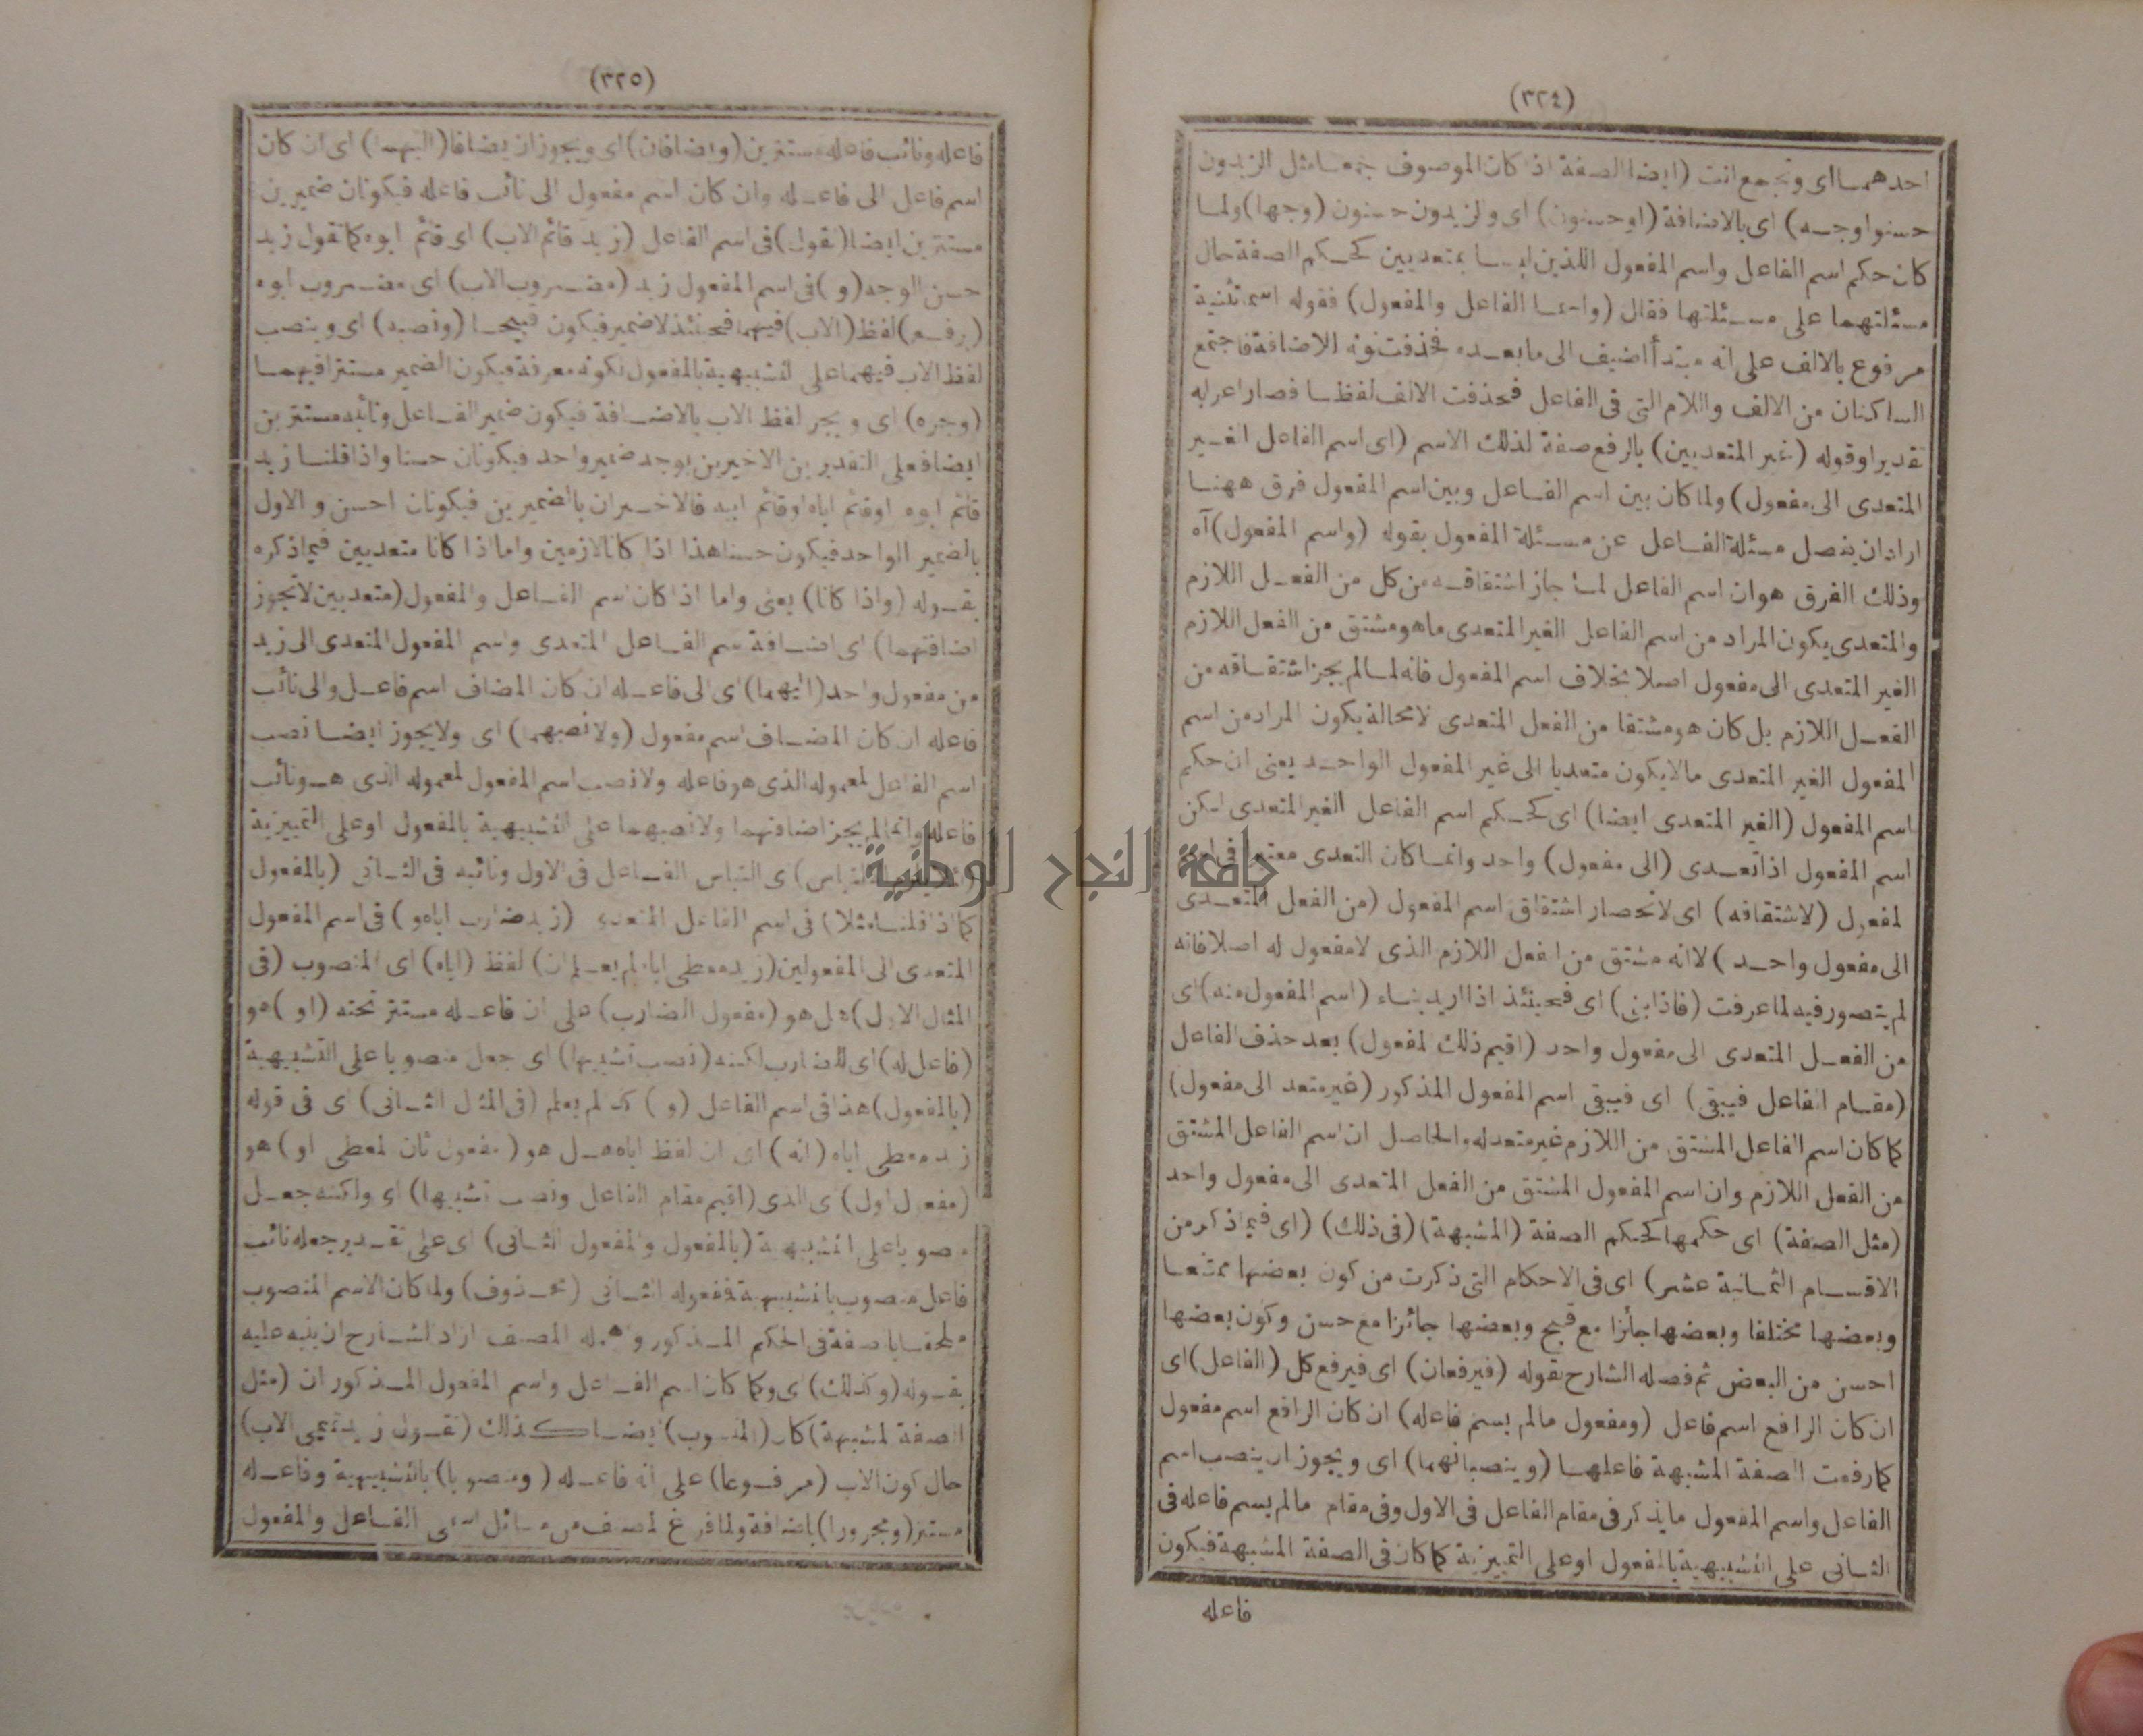 (٣٢٤)
احدهما اى وتجمع انت (ايضا الصفة اذ كان الموصوف جمعا مثل الزيدون
حسنوا وجه) اى بالاضافة (او حسنون) اى والزيدون حسنون (وجها) ولما
كان حكم اسم الفاعل واسم المفعول اللذين ليسا بمتعديين كحكم الصفة حال
مسئلتهما على مسئلتها فقال (واسما الفاعل والمفعول) فقوله اسما تثنية
مرفوع بالالف على انه مبتدأ اضيف الى ما بعده فحذفت نونه للاضافة فاجتمع
الساكنان من الالف واللام التى فى الفاعل فحذفت الالف لفظا فصار اعرابه
تقديرا وقوله (غير المتعديين) بالرفع صفة لذلك الاسم (اى اسم الفاعل الغير
المتعدى الى مفعول) ولما كان بين اسم الفاعل وبين اسم المفعول فرق ههنا
اراد ان يفصل مسئلة الفاعل عن مسئلة المفعول بقوله (واسم المفعول) آه
وذلك الفرق هو ان اسم الفاعل لما جاز اشتقاقه من كل من الفعل اللازم
والمتعدى يكون المراد من اسم الفاعل الغير المتعدى ما هو مشتق من الفعل اللازم
الغير المتعدى الى مفعول اصلا بخلاف اسم المفعول فانه لما لم يجز اشتقاقه من
الفعل اللازم بل كان هو مشتقا من الفعل المتعدى لا محالة يكون المراد من اسم
المفعول الغير المتعدى ما لا يكون متعديا الى غير المفعول الواحد يعنى ان حكم
اسم المفعول (الغير المتعدى ايضا) اى كحكم اسم الفاعل الغير المتعدى لكن
اسم المفعول اذا تعدى (الى مفعول) واحد وانما كان التعدى معتبرا فى اسم
لمفعول (لاشتقاقه) اى لانحصار اشتقاق اسم المفعول (من الفعل المتعدى
الى مفعول واحد) لانه مشتق من الفعل اللازم الذى لا مفعول له اصلا فانه
لم يتصور فيه لما عرفت (فاذا بنى) اى فحينئذ اذا اريد بناء (اسم المفعول منه) اى
من الفعل المتعدى الى مفعول واحد (اقيم ذلك المفعول) بعد حذف الفاعل
(مقام الفاعل فيبقى) اى فيبقى اسم المفعول المذكور (غير متعد الى مفعول)
كما كان اسم الفاعل المشتق من اللازم غير متعد له والحاصل ان اسم الفاعل المشتق
من الفعل اللازم وان اسم المفعول المشتق من الفعل المتعدى الى مفعول واحد
(مثل الصفة) اى حكمها كحكم الصفة (المشبهة) (فى ذلك) (اى فيما ذكر من
الاقسام الثمانية عشر) اى فى الاحكام التى ذكرت من كون بعضها ممتنعا
وبعضها مختلفا وبعضها جائزا مع قبح وبعضها جائزا مع حسن وكون بعضها
احسن من البعض ثم فصله الشارح بقوله (فيرفعان) اى فيرفع كل (الفاعل) اى
ان كان الرافع اسم فاعل (ومفعول ما لم يسم فاعله) ان كان الرافع اسم مفعول
كما رفعت الصفة المشبهة فاعلها (وينصبانهما) اى ويجوز ان ينصب اسم
الفاعل واسم المفعول ما يذكر فى مقام الفاعل فى الاول وفى مقام ما لم يسم فاعله فى
الثانى على التشبيهية بالمفعول او على التمييزية كما كان فى الصفة المشبهة فيكون
فاعله
(٣٢٥)
فاعله ونائب فاعله مستترين (ويضافان) اى ويجوز ان يضافا (اليهما) اى ان كان
اسم فاعل الى فاعله وان كان اسم مفعول الى نائب فاعله فيكونان ضميرين
مستترين ايضا (تقول) فى اسم الفاعل (زيد قائم الاب) اى قائم ابوه كما تقول زيد
حسن الوجه (و) فى اسم المفعول زيد (مضروب الاب) اى مضروب ابوه
(برفع) لفظ (الاب) فيهما فحينئذ لا ضمير فيكون قبيحا (ونصبه) اى وينصب
لفظ الاب فيهما على التشبيهية بالمفعول لكونه معرفة فيكون الضمير مستترا فيهما
(وجره) اى ويجر لفظ الاب بالاضافة فيكون ضمير الفاعل ونائبه مستترين
ايضا فعلى التقديرين الاخيرين يوجد ضمير واحد فيكونان حسنا واذا قلنا زيد
قائم ابوه او قائم اباه او قائم ابيه فالاخيران بالضميرين فيكونان احسن والاول
بالضمير الواحد فيكون حسنا هذا اذا كانا لازمين واما اذا كانا متعديين فيما ذكره
بقوله (واذا كانا) يعنى واما اذا كان اسم الفاعل والمفعول (متعديين لا تجوز
اضافتهما) اى اضافة اسم الفاعل المتعدى واسم المفعول المتعدى الى ازيد
من مفعول واحد (اليهما) اى الى فاعله ان كان المضاف اسم فاعل والى نائب
فاعله ان كان المضاف اسم مفعول (ولا نصبهما) اى ولا يجوز ايضا نصب
اسم الفاعل لمعموله الذى هو فاعله ولا نصب اسم المفعول لمعموله الذى هو نائب
فاعله وانما لم يجز اضافتهما ولا نصبهما على التشبيهية بالمفعول او على التمييزية
اى التباس الفاعل فى الاول ونائبه فى الثانى (بالمفعول
كما اذا قلنا مثلا) فى اسم الفاعل المتعدى (زيد ضارب اباه و) فى اسم المفعول
المتعدى الى المفعولين (زيد معطى اباه لم يعلم ان) لفظ (اباه) اى المنصوب (فى
المثال الاول) هل هو (مفعول الضارب) على ان فاعله مستتر تحته (او) هو
(فاعل له) اى للضارب لكنه (نصب تشبيها) اى جعل منصوبا على التشبيهية
(بالمفعول) هذا فى اسم الفاعل (و) كذا لم يعلم (فى المثال الثانى) اى فى قوله
زيد معطى اباه (انه) اى ان لفظ اباه هل هو (مفعول ثان لمعطى او) هو
(مفعول اول) اى الذى (اقيم مقام الفاعل ونصب تشبيها) اى ولكنه جعل
منصوبا على التشبيهية (بالمفعول والمفعول الثانى) اى على تقدير جعله نائب
فاعل منصوب بالتشبيهية فمفعوله الثانى (محذوف) ولما كان الاسم المنصوب
ملحقا بالصفة فى الحكم المذكور واهمله المصنف اراد الشارح ان ينبه عليه
بقوله (وكذلك) اى وكما كان اسم الفاعل واسم المفعول المذكوران (مثل
الصفة المشبهة) كان (المنسوب) ايضا كذلك (تقول زيد تميمى الاب)
حال كون الاب (مرفوعا) على انه فاعله (ومنصوبا) بالتشبيهية وفاعله
مستتر (ومجرورا) باضافة ولما فرغ المصنف من مسائل اسمى الفاعل والمفعول
جامعة النجاح الوطنية